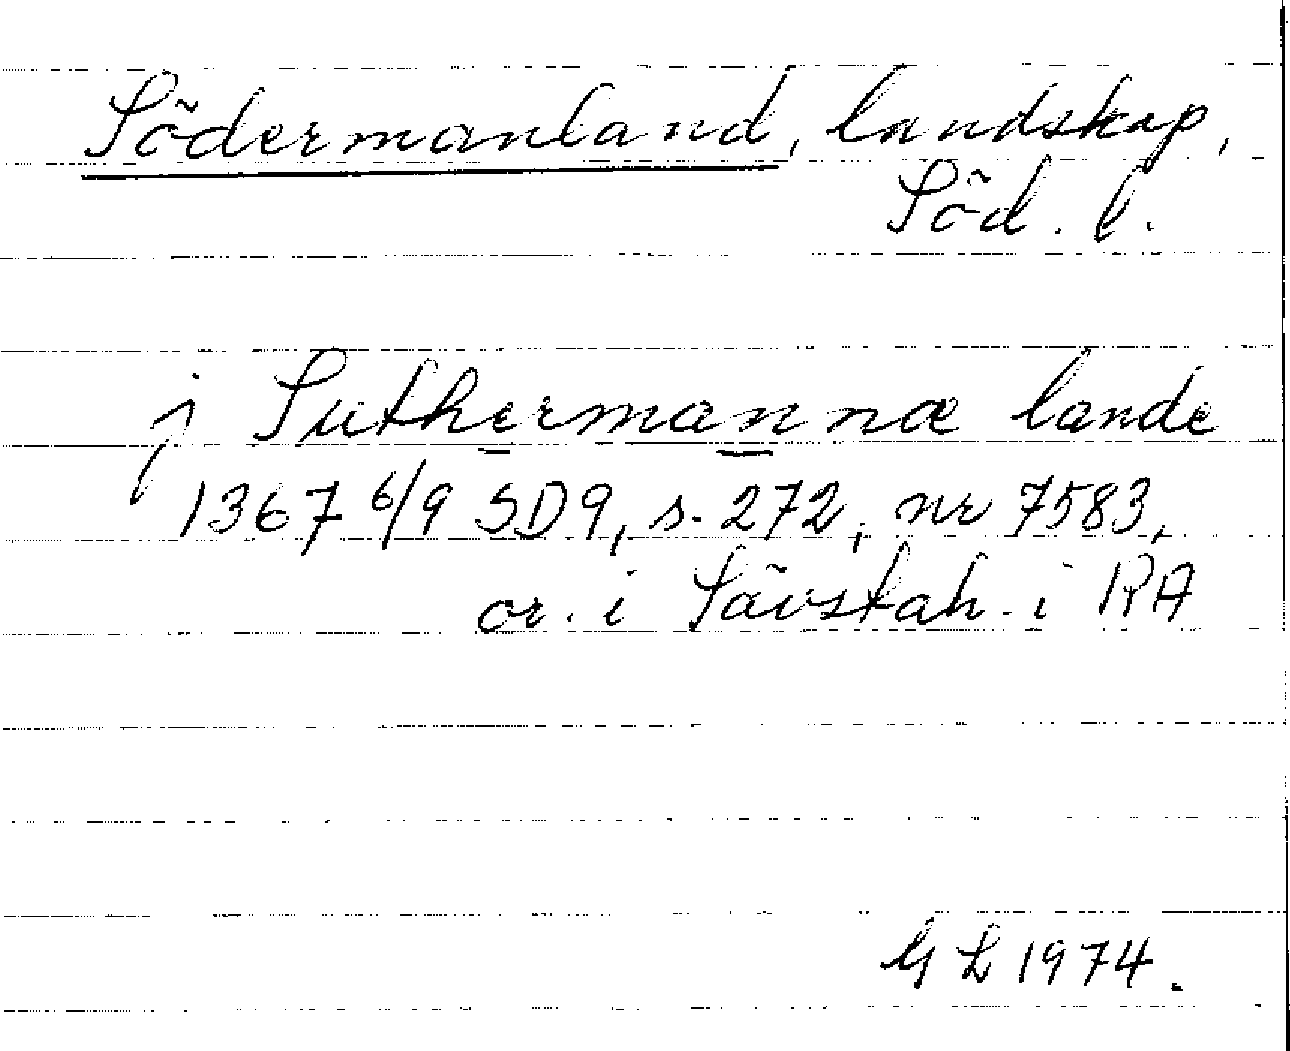 Södermanland, landskap,
Söd. l.
j Suthermannæ lande
1367 6/9 SD9, s. 272, nr 7583,
or. i Sävstah. i RA
GL 1974.